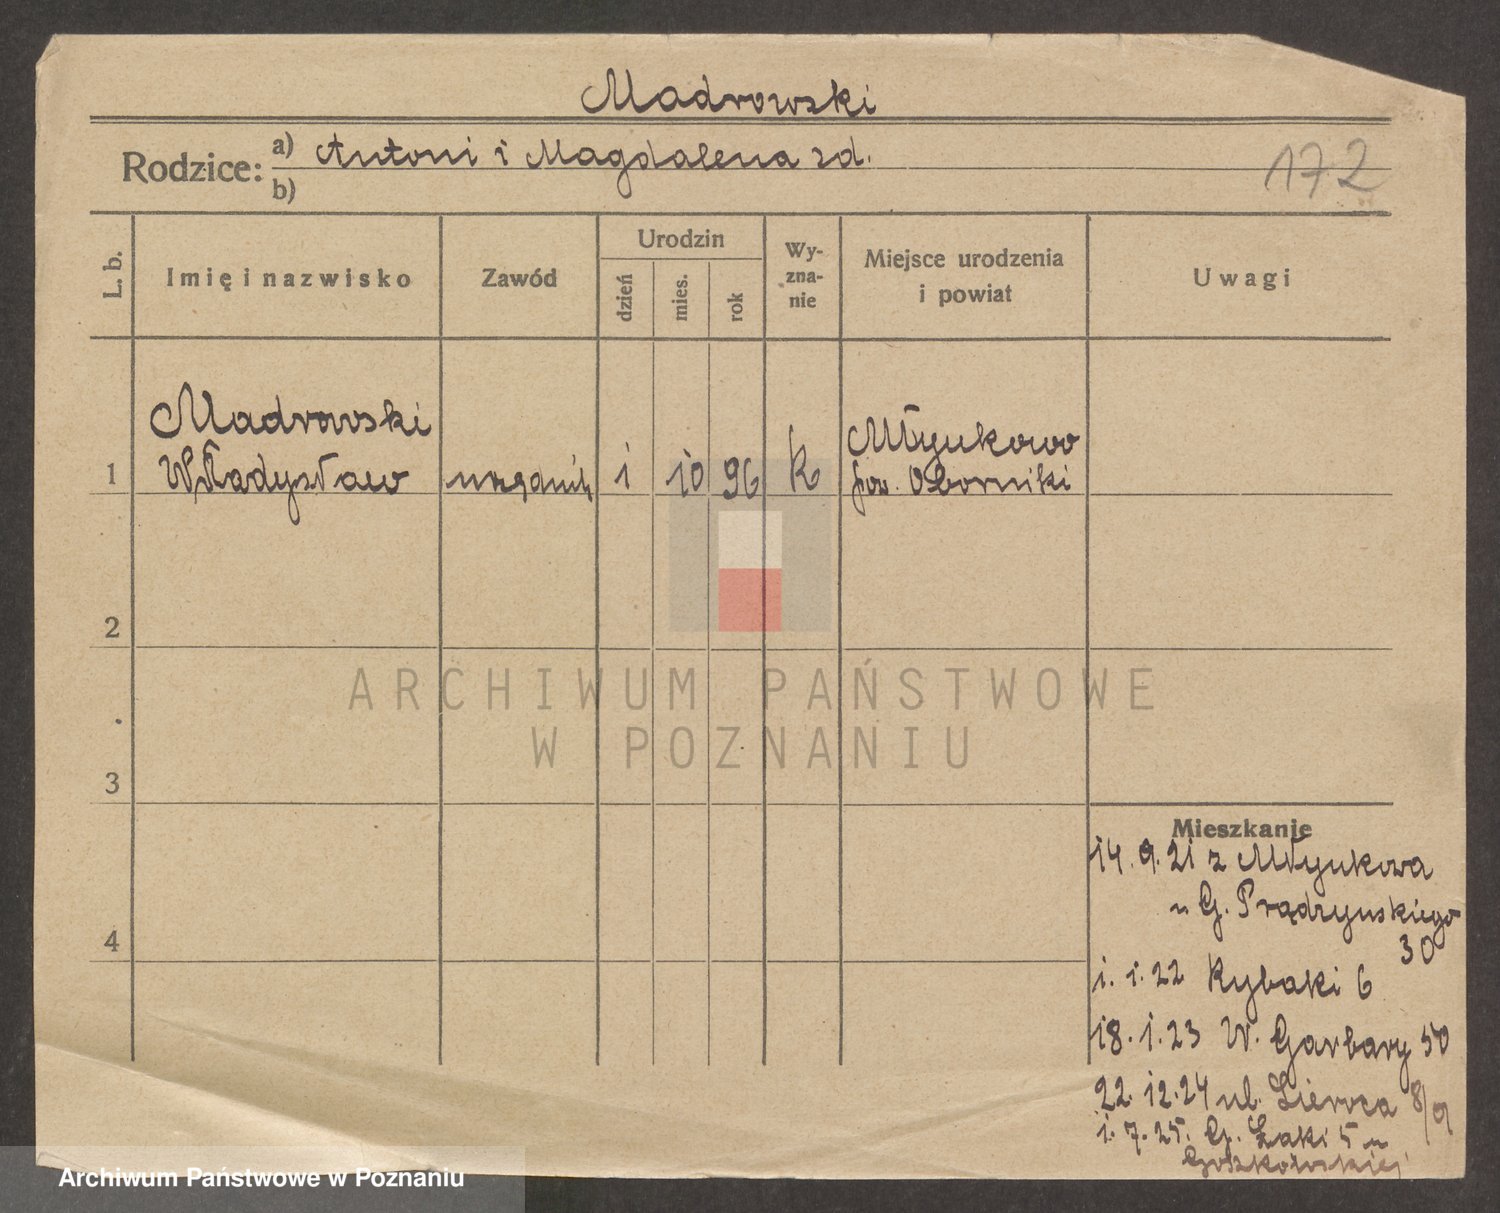 Madrowski
Rodzice: a) Antoni i Magdalena zd.
b)
172
L. b. Imię i nazwisko Zawód Urodzin dzień mies. rok Wy-zna-nie Miejsce urodzenia i powiat Uwagi
Madrowski Młynkowo
1 Władysław urzędnik 1 10 96 k pow. Oborniki
2
ARCHIWUM PAŃSTWOWE
W POZNANIU
3
Mieszkanie
14.9.21 z Młynkowa
u G. Prądzyńskiego
30
4
1.1.22 Rybaki 6
18.1.23 W. Garbary 50
22.12.24 ul. 8/9
1.7.25. G. Łaki 5 u
Archiwum Państwowe w Poznaniu